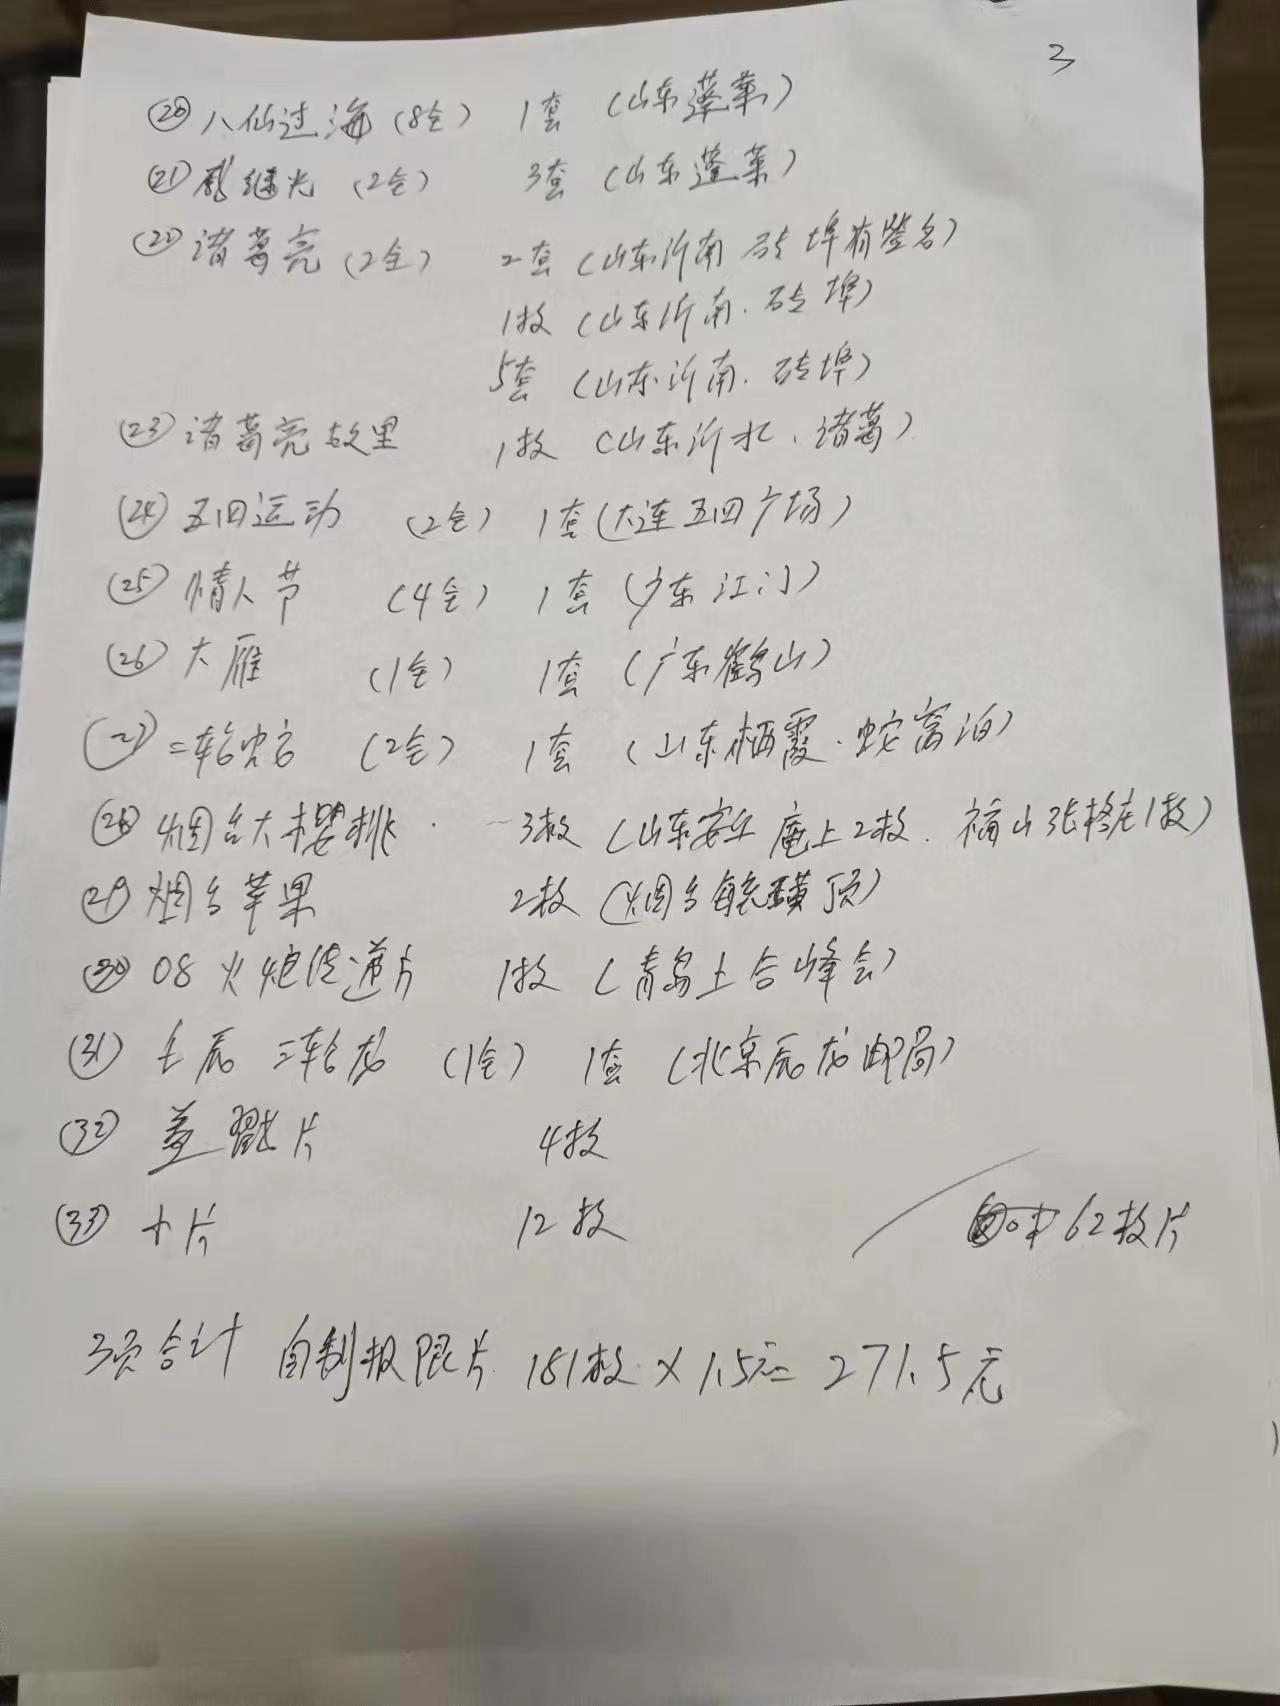 3
⑳ 八仙过海 (8全) 1套 (山东蓬莱)
(21) 戚继光 (2全) 3套 (山东蓬莱)
(22) 诸葛亮 (2全) 2套 (山东沂南 砖埠有签名)
1枚 (山东沂南.砖埠)
5套 (山东沂南.砖埠)
(23) 诸葛亮故里 1枚 (山东沂水、诸葛)
(24) 五四运动 (2全) 1套 (大连五四广场)
(25) 情人节 (4全) 1套 (广东江门)
(26) 大雁 (1全) 1套 (广东鹤山)
(27) 二轮蛇 (2全) 1套 (山东栖霞.蛇窝泊)
(28) 烟台大樱桃 3枚 (山东 庵上2枚.福山张格庄1枚)
(29) 烟台苹果 2枚 (烟台毓璜顶)
(30) 08火炬传递片 1枚 (青岛上合峰会)
(31) 壬辰 三轮龙 (1全) 1套 (北京辰龙邮局)
(32) 盖戳片 4枚
(33) 卡片 12枚
62枚片
3页合计 自制极限片 181枚 × 1.5元= 271.5元